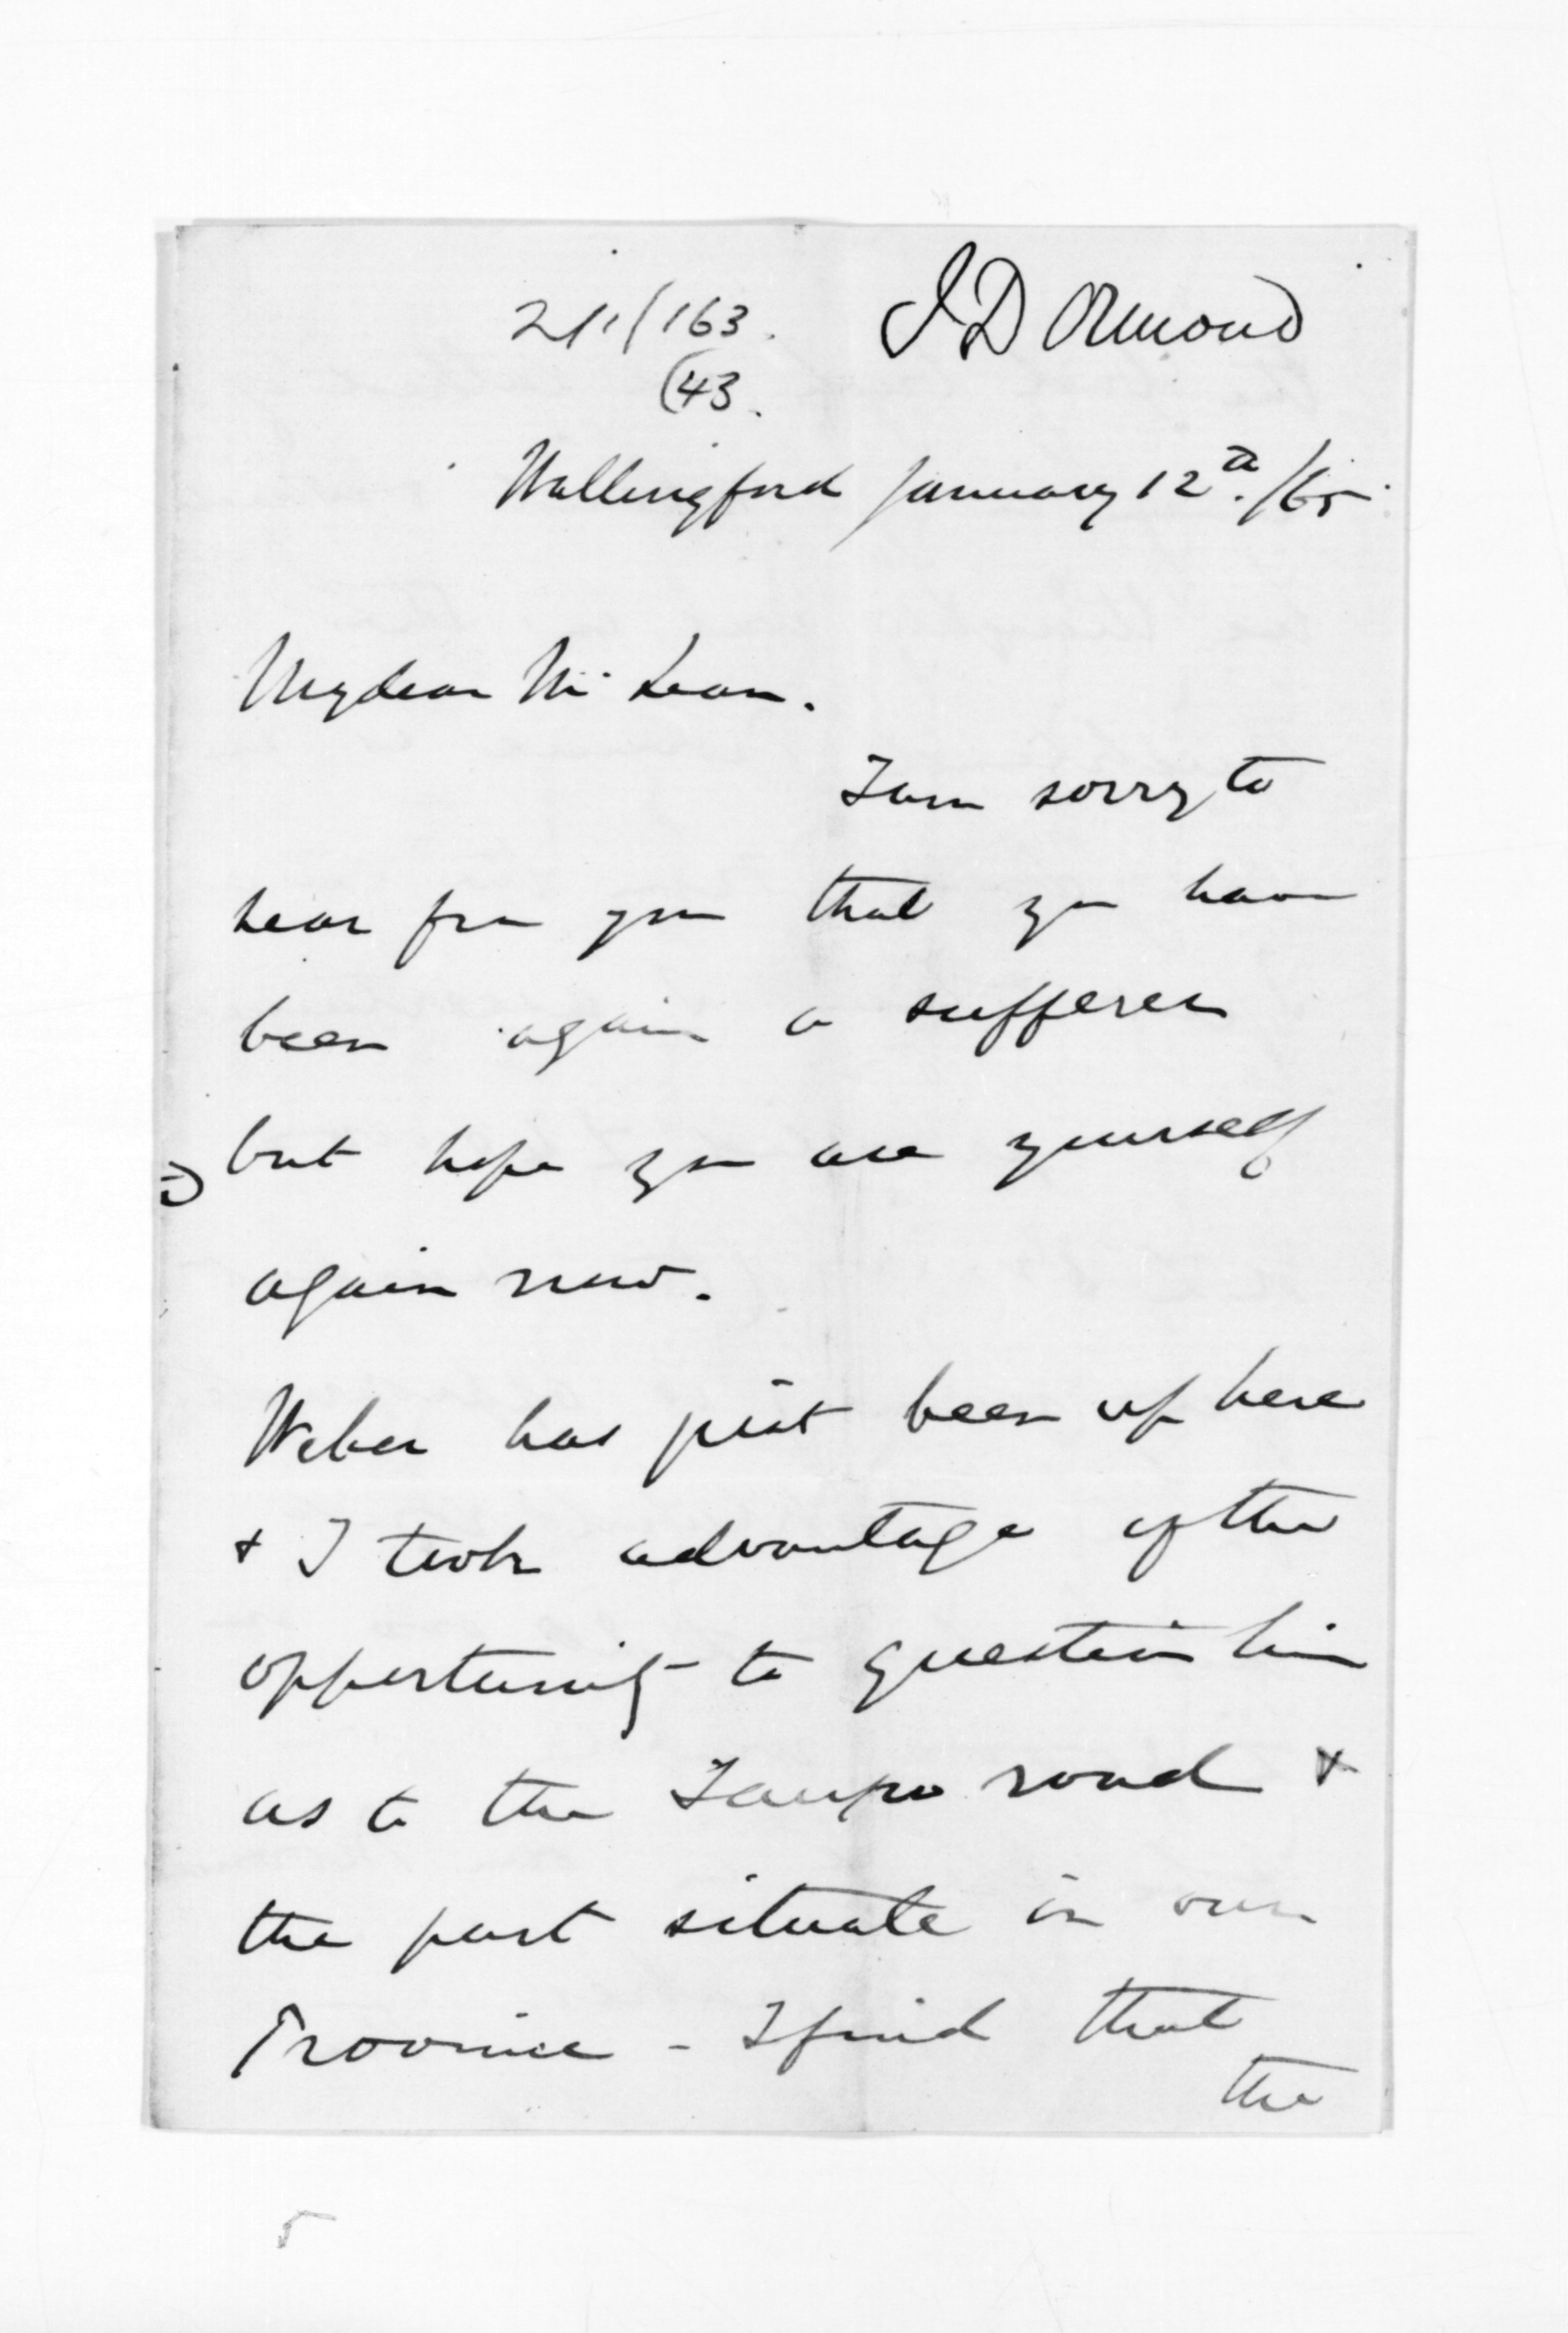 J D Ormond
(43.
Wallingford January 12th. /65
My dear McLean.
I am sorry to
hear from you that you have
been again a sufferer
but hope you are yourself
again now.
Weber has just been up here
& I took advantage of the
opportunity to question him
as to the Taupo road &
the part situate in our
Province - I find that
the
5